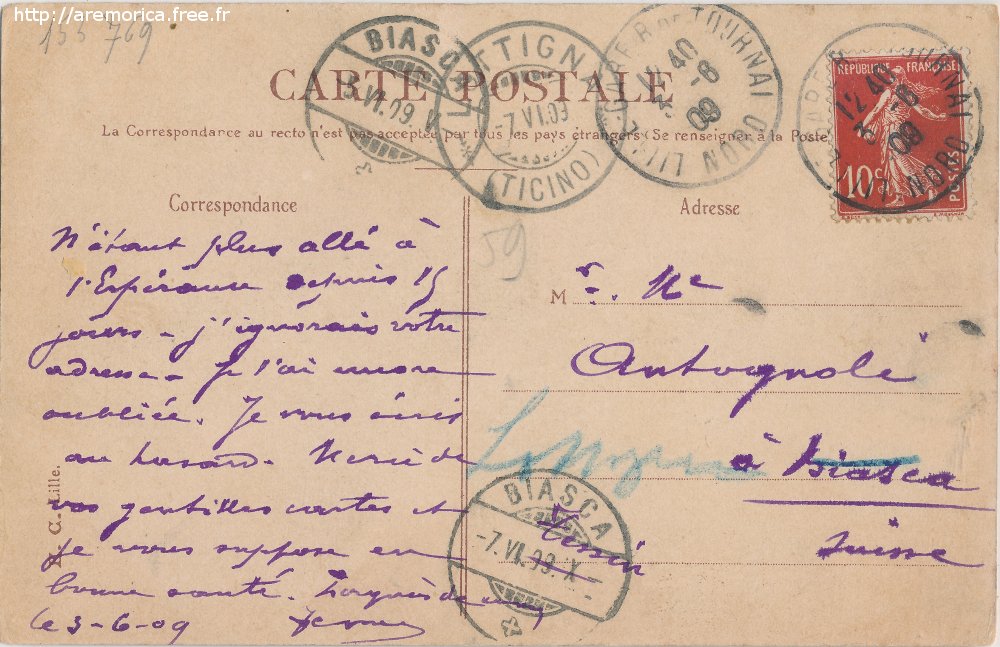 http://aremorica.free.fr
155 769
CARTE POSTALE
La Correspondance au recto n'est pas acceptée par tous les pays étrangers (Se renseigner à la Poste)
BIASCA
VI.09
LOTTIGNA
-7 VI.09
(TICINO)
LILLE PL. DE TOURNAI NORD
12 40
3 -6
09
REPUBLIQUE FRANÇAISE
10c
POSTES
TOURNAI NORD
12 40
3 -6
09
Correspondance
N'étant plus allé à
l'Espérance depuis 15
jours - j'ignorais votre
adresse - Je l'ai encore
oubliée. Je vous écris
au hasard. Merci de
vos gentilles cartes et
je vous suppose en
bonne santé.
Le 3-6-09
C. Lille.
59
Adresse
M r. Me
Antognoli
à Biasca
Tessin
Suisse
BIASCA
-7.VI.09.X-